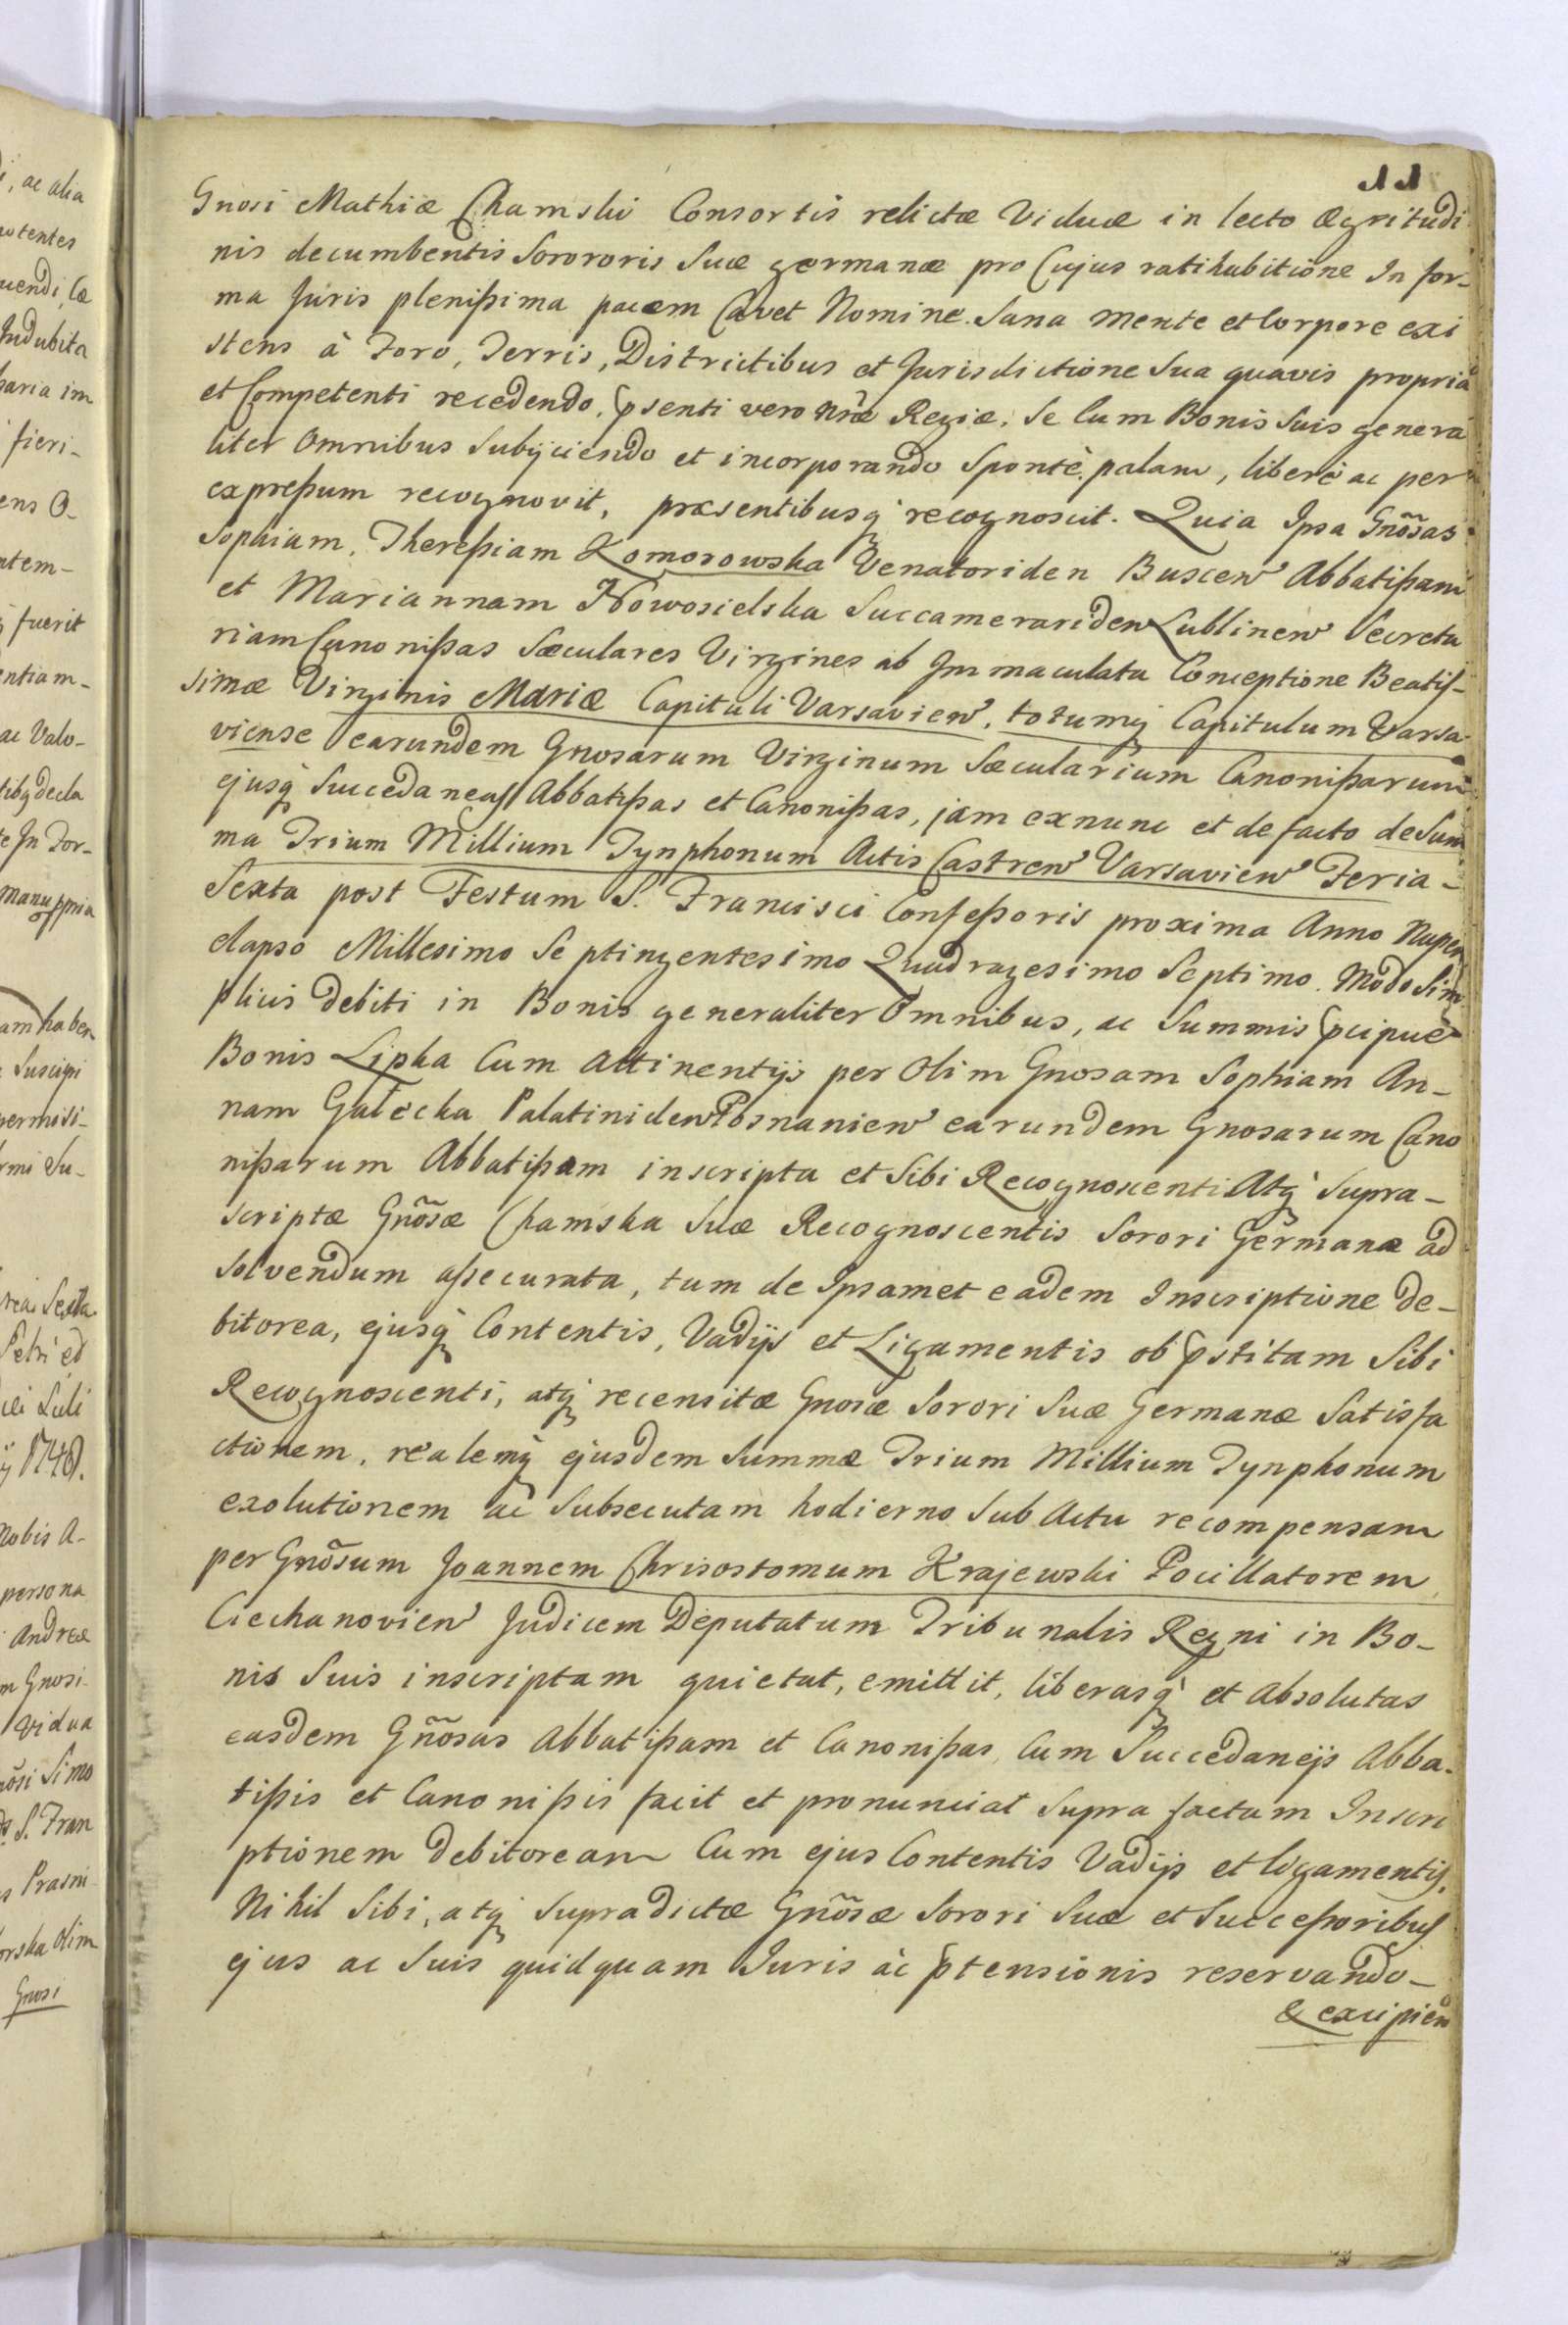 i, ac alia
entes
uendi, Cæ
Indubita
paria im
fieri-
ens O-
ntem-
fuerit
entiam-
ac Valo-
tibq decla
te In For-
Manuppria
am haben
Suscipi
permisi-
rmi Su-
ria Sexta
Petri et
ili Luli
ij 1748.
Nobis A-
persona
Andreæ
m Gnosi
Vidua
nõsi Simo
S. Fran
Prasni
orska olim
Gnosi
11
Gnosi Mathiæ Chamski Consortis relictæ Viduæ in lecto Ægritudi
nis decumbentis Sorororis Suæ germanæ pro Cujus ratihabitione In for-
ma Juris plenißima pacem Cavet Nomine. Sana mente et Corpore exi
stens à Foro, Terris, Districtibus et Jurisdictione Sua quavis propria
et Competenti recedendo, Psenti vero Nr̃æ Regiæ, Se Cum Bonis Suis genera
liter Omnibus Subijciendo et incorporando Spontè, palam, liberè ac per
expreßum recognovit, præsentibusq̀ recognoscit. Quia Ipsa Gnõsas
Sophiam, Thereßiam Komorowska Venatoriden Buscen̄ Abbatißam
et Mariannam Nowosielska Succamerariden Lublinen̄ Secreta
riam Canonißas Sæculares Virgines ab Immaculata Conceptione Beatis-
simæ Virginis Mariæ Capituli Varsavien̄, totumq̀ Capitulum Varsa
viense earundem Gnosarum Virginum Sæcularium Canonißarum
ejusq̀ Succedaneas Abbatißas et Canonißas, jam exnunc et de facto de Sum
ma Trium Millium Tynphonum Actis Castren̄ Varsavien̄ Feria-
Sexta post Festum S. Francisci Confeßoris proxima Anno Nuper
elapso Millesimo Septingentesimo Quadragesimo Septimo. Modo Sim
plicis debiti in Bonis generaliter Omnibus, ac Summis Pcipuè
Bonis Lipka Cum Attinentijs per Olim Gnosam Sophiam An-
nam Gałecka Palatiniden Posnanien̄ earundem Gnosarum Cano
nißarum Abbatißam inscripta et Sibi Recognoscenti Atq̀ Supra-
scriptæ Gnõsæ Chamska Suæ Recognoscentis Sorori Germanæ ad
Solvendum aßecurata, tum de Ipsamet eadem Inscriptione De-
bitorea, ejusq̀ Contentis, Vadijs et Ligamentis ob Pstitam Sibi
Recognoscenti, atq̀ recensitæ Gnosæ Sorori Suæ Germanæ Satisfa
ctionem, realemq̀ ejusdem Summæ Trium Millium Tynphonum
exolutionem ac Subsecutam hodierno Sub Actu recompensam
per Gnõsum Joannem Chrisostomum Krajewski Pocillatorem
Ciechanovien̄ Judicem Deputatum Tribunalis Regni in Bo-
nis Suis inscriptam quietat, emittit, liberasq̀ et Absolutas
easdem Gñõsas Abbatißam et Canonißas, Cum Succedaneijs Abba-
tißis et Canonißis facit et pronunciat Supra factam Inscri
ptionem debitoream Cum ejus Contentis Vadijs et ligamentis.
Nihil Sibi, atq̀ Supradictæ Gnõsæ Sorori Suæ et Succeßoribus
ejus ac Suis quidquam Juris àc Ptensionis reservando-
& excipien